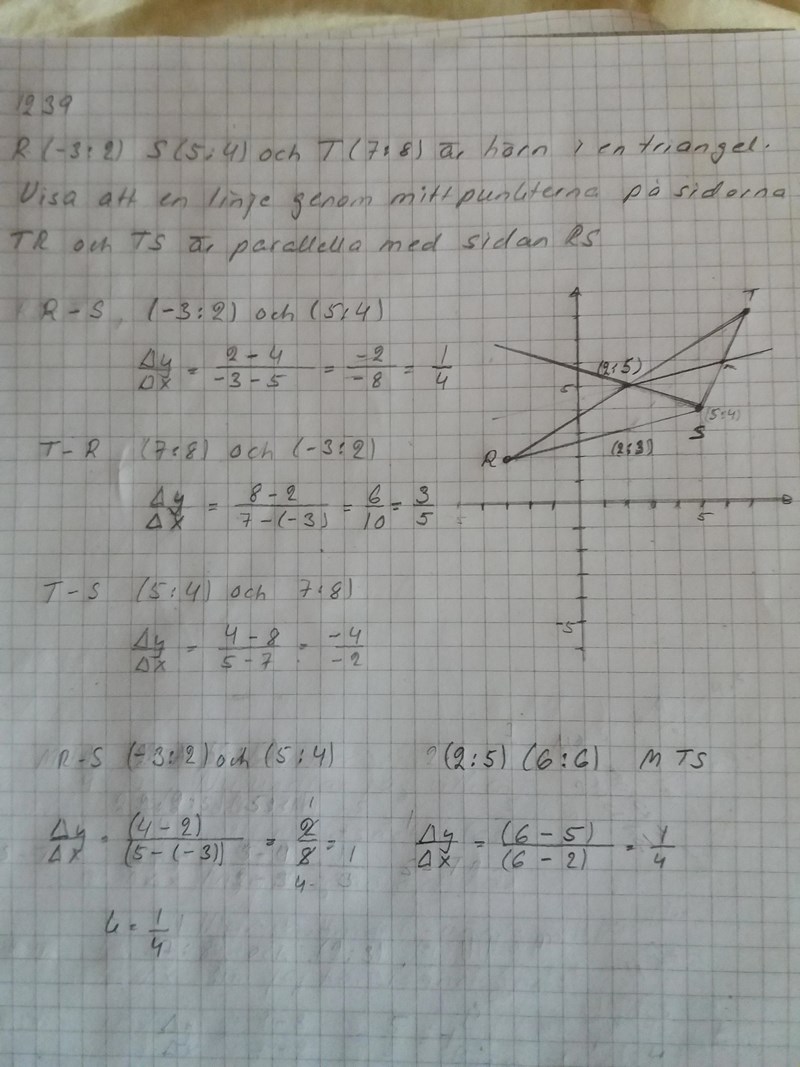 1239
R (-3:2) S (5:4) och T (7:8) är hörn i en triangel.
Visa att en linje genom mittpunkterna på sidorna
TR och TS är parallella med sidan RS
R-S (-3:2) och (5:4)
Δy/Δx = (2-4)/(-3-5) = -2/-8 = 1/4
T-R (7:8) och (-3:2)
Δy/Δx = (8-2)/(7-(-3)) = 6/10 = 3/5
T-S (5:4) och 7:8)
Δy/Δx = (4-8)/(5-7) = -4/-2
T
(2:5)
5
(5:4)
S
R
(2:3)
5
-5
R-S (-3:2) och (5:4)
Δy/Δx = (4-2)/(5-(-3)) = 2/8 =
1
4
1
k = 1/4
(2:5) (6:6) M TS
Δy/Δx = (6-5)/(6-2) = 1/4